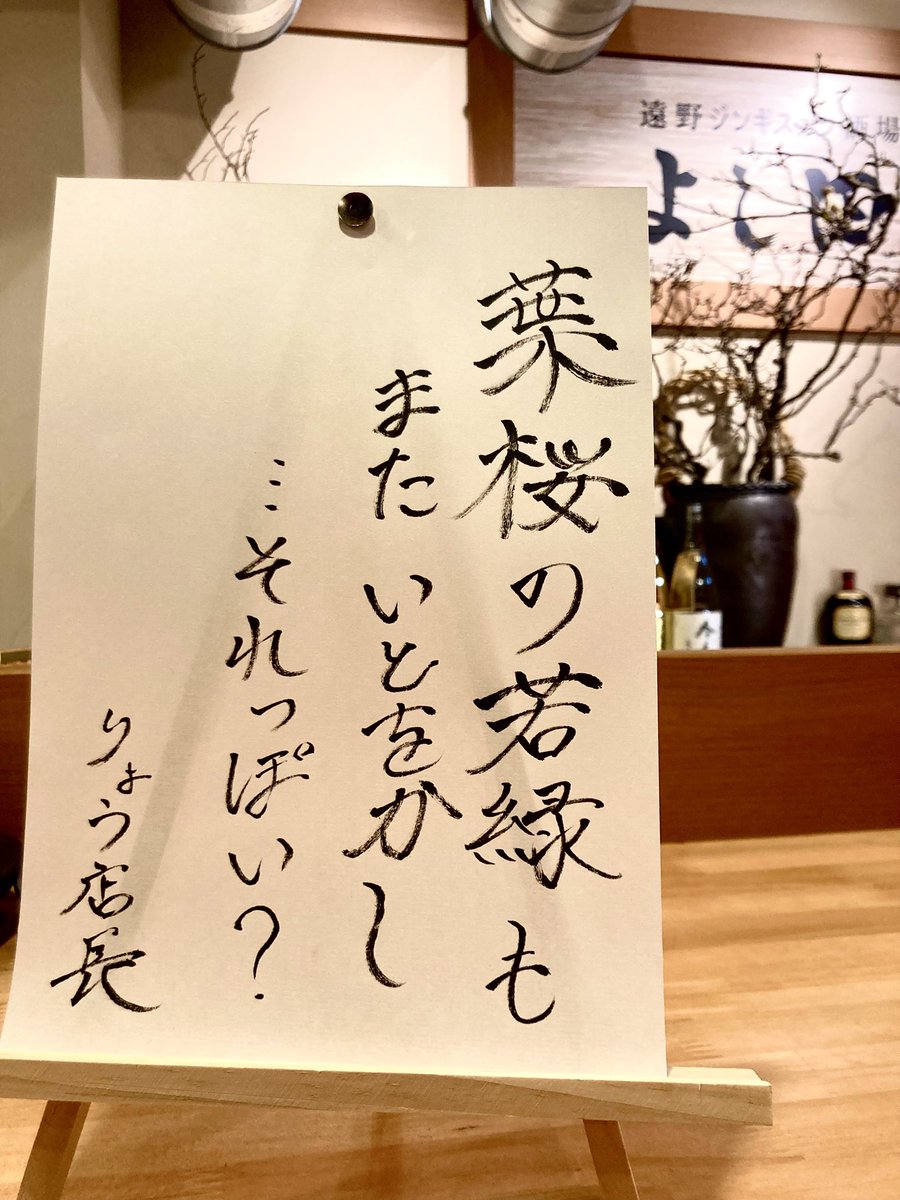 遠野ジンギスカン酒場
よし田
葉桜の若緑も
また いとをかし
…それっぽい?
りょう店長